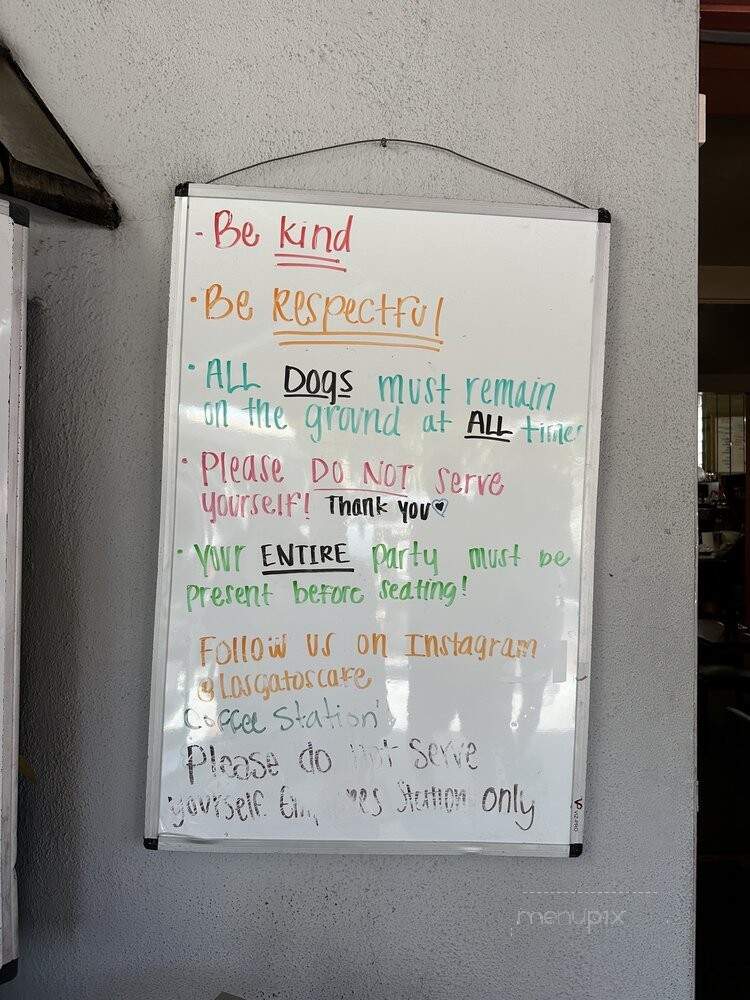 - Be kind
· Be Respectful
· ALL Dogs must remain
on the ground at ALL time
· Please DO NOT serve
yourself! Thank you♡
· Your ENTIRE party must be
present before seating!
Follow us on Instagram
@Losgatoscafe
Coffee Station
Please do not serve
yourself. Station only
VIZ-PRO
menupix